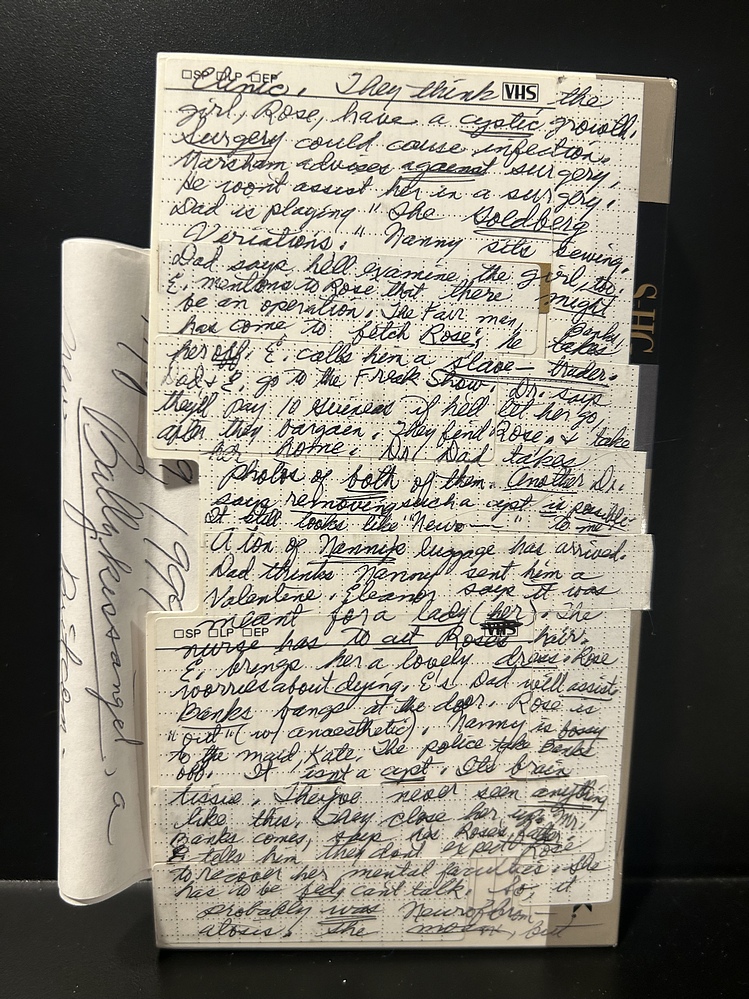 □SP □LP □EP
Clinic. They think VHS the
girl, Rose, have a cystic growth.
Surgery could cause infection.
Marsham advises against surgery.
He wont assist her in a surgery.
Dad is playing "The Goldberg
Variations." Nanny sits sewing.
Dad says hell examine the girl, too.
E. mentions to Rose that there might
be an operation. The Fair man, Banks,
has come to fetch Rose; he takes
her off. E. calls him a slave-trader.
Dad & E. go to the Freak Show. Dr. says
they'll pay 10 guineas if hell let her go,
after they bargain. They find Rose, & take
her home. Dr. Dad takes
photos of both of them. Another Dr.
says removing such a cyst is possible
It still looks like "Neuro—" to me
A ton of Nanny's luggage has arrived.
Dad thinks Nanny sent him a
Valentine. Eleanor says it was
meant for a lady (her). The
□SP □LP □EP VHS
nurse has to cut Roses hair.
E. brings her a lovely dress. Rose
worries about dying. E's Dad will assist.
Banks bangs at the door. Rose is
"out" (w/ anaesthetic). Nanny is bossy
to the maid, Kate. The police take Banks
off. It isnt a cyst. Its brain
tissue. They've never seen anything
like this. They close her up. Mr.
Banks comes, says his Roses father.
E tells him they dont expect Rose
to recover her mental faculties. She
has to be fed, cant talk. So, it
probably was Neurofibrom-
atosis. She moans, but
JH-S
199
Ballykissangel, a